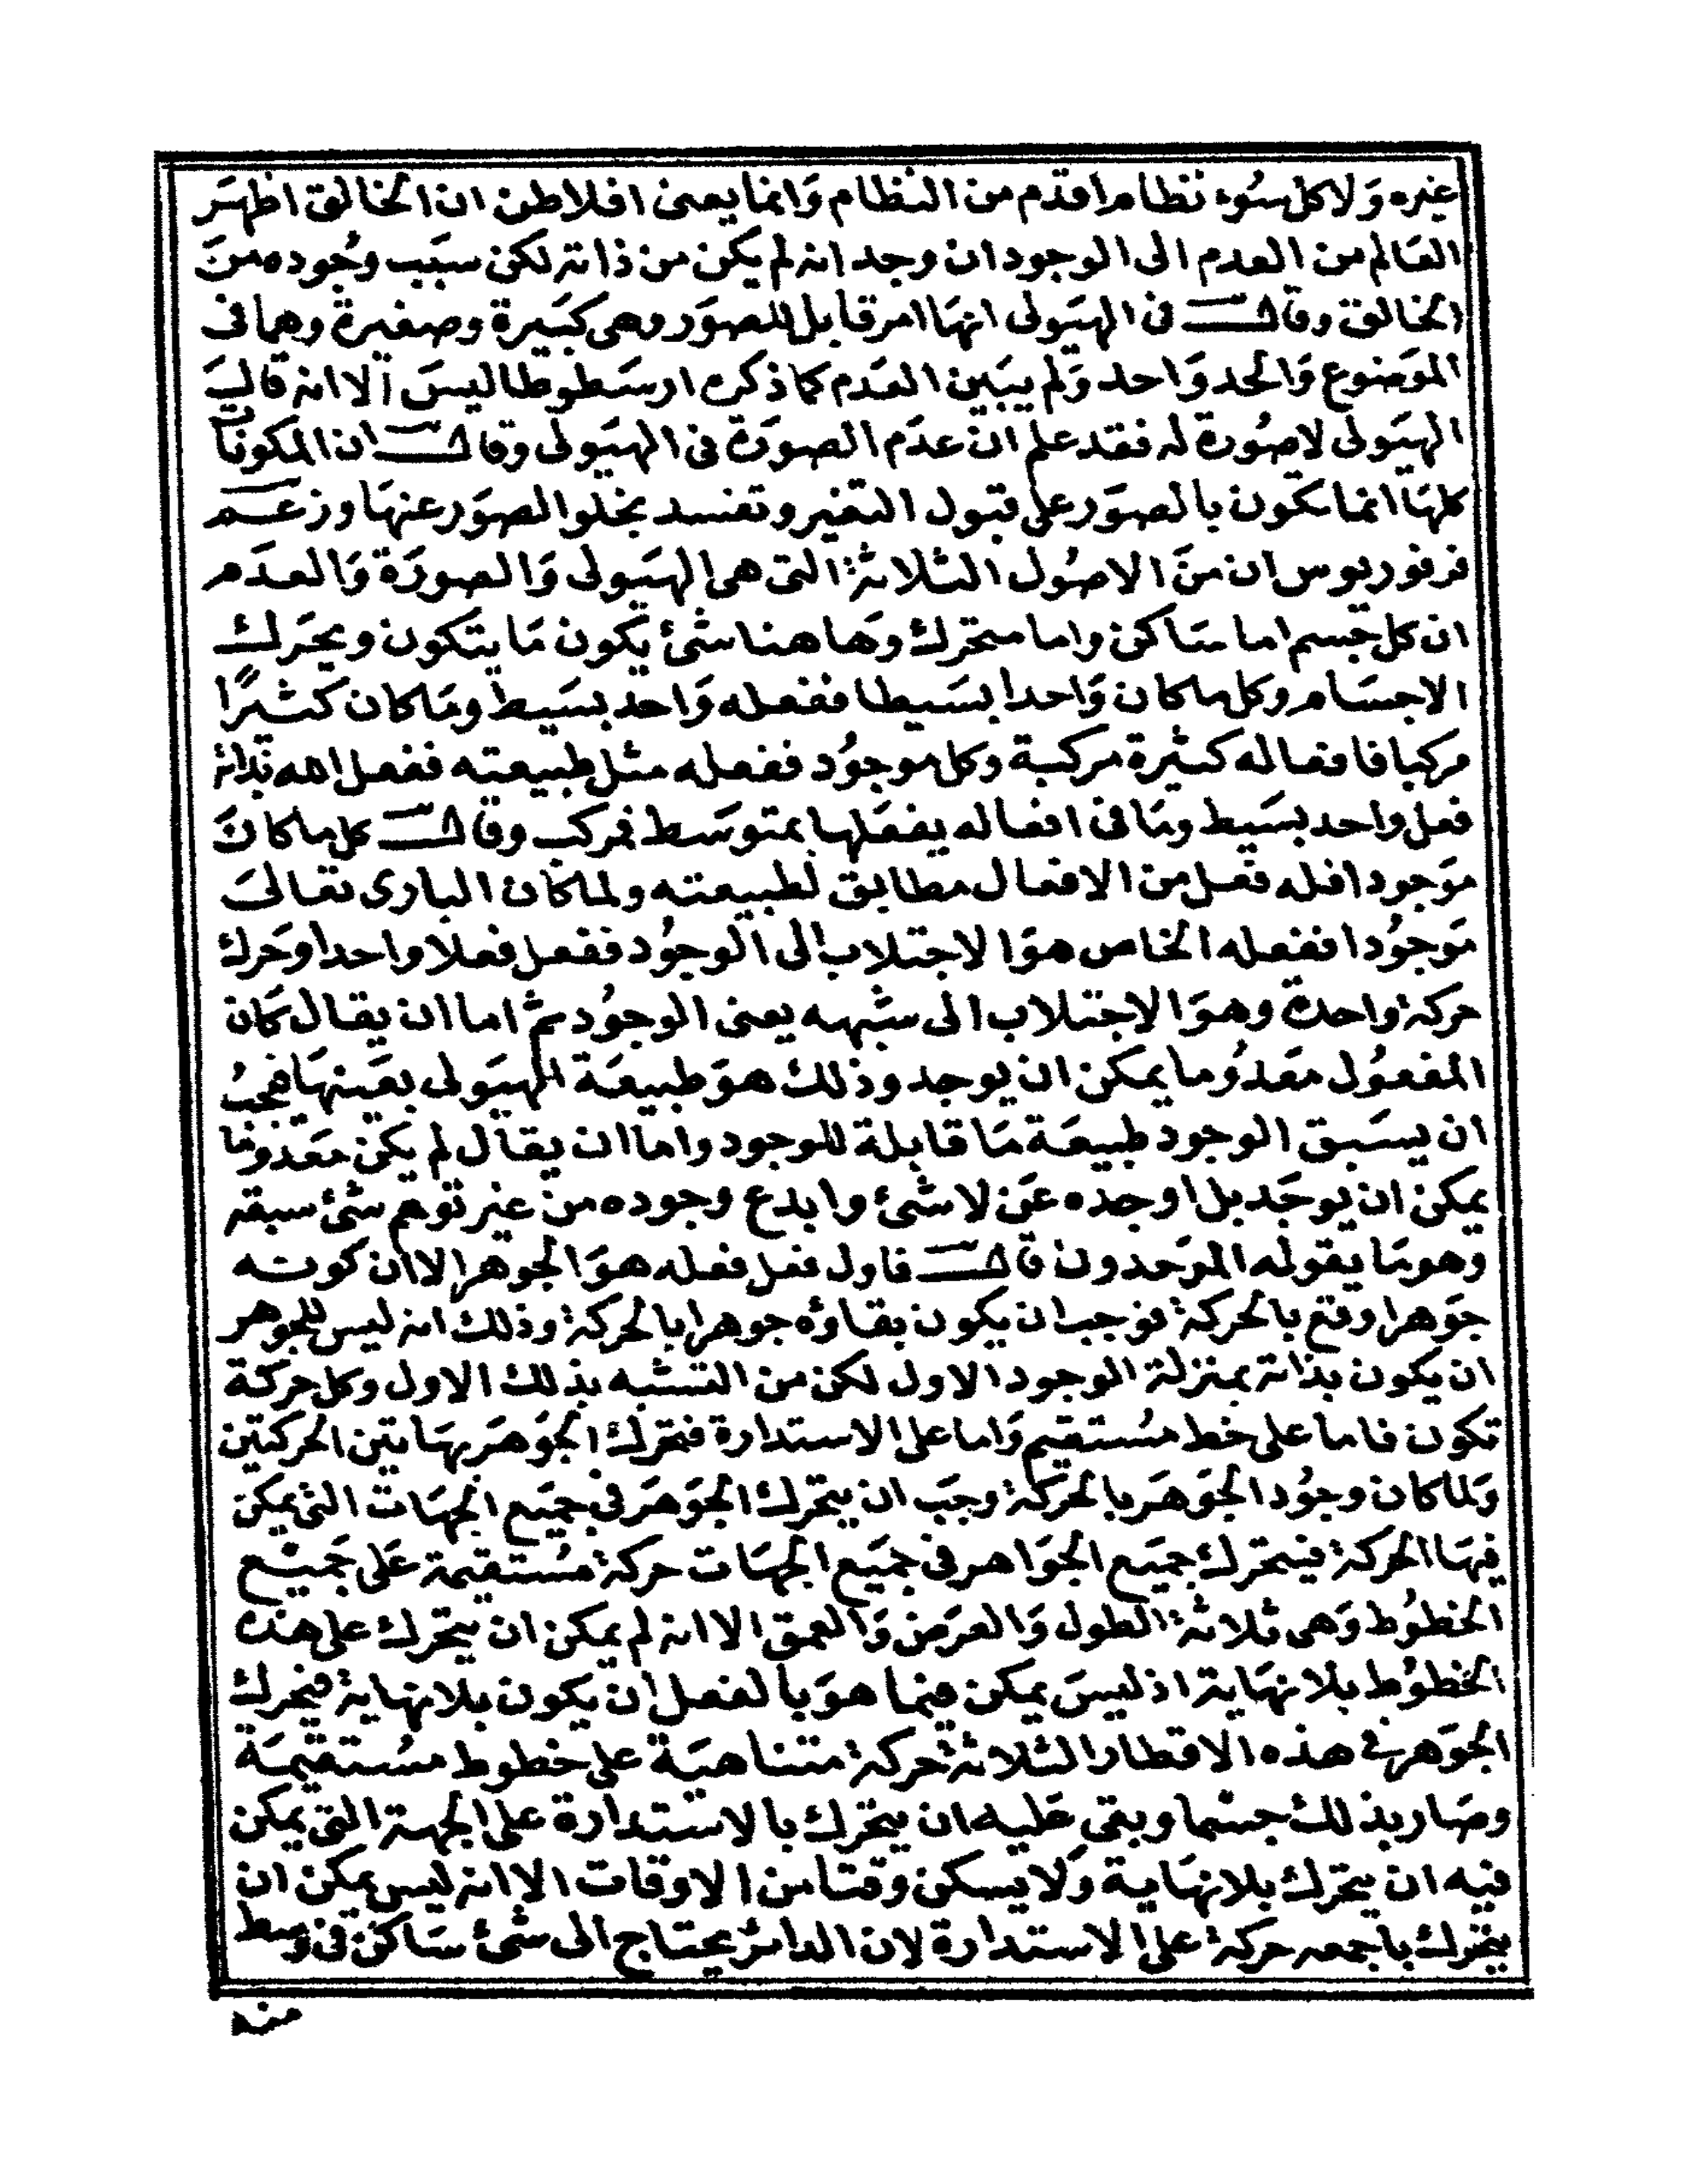 غيره وَلا كل سُوء نظام اقدم من النظام وَانما يعنى افلاطن ان الخالق اظهَر
العَالم من العدم الى الوجود ان وجد انه لم يكن من ذاته لكن سبَب وجُوده منَ
الخالق وقال فى الهيَولى انهَا امر قابل للصوَر وهى كبَيرة وصغيرة وهما فى
الموَضوع وَالحد وَاحد وَلم يبَين العَدم كما ذكره ارسَطوطاليسَ اَلا انه قالَ
الهيَولى لا صُورة له فقد علم ان عدَم الصورَة فى الهيَولى وقال ان المكونات
كلهَا انما تكون بالصوَر على قبول التغير وتفسد بخلو الصوَر عنهَا وزعَم
فرفوريوس ان منَ الاصُول الثلاثة التى هى الهيَولى وَالصورَة وَالعدَم
ان كل جسم اما سَاكن واما متحرك وَها هنا شئ يكون مَا يتكون ويحَرك
الاجسَام وكل ما كان وَاحدا بسَيطا ففعله وَاحد بسَيط ومَا كان كثيرًا
مركبا فافعاله كثيرة مركبة وكل موجُود ففعله مثل طبيعته ففعل الله بذاته
فعل واحد بسَيط ومَا فى افعاله يفعَلها بمتوسَط فمركب وقال كل ما كانَ
موَجودا فله فعل من الافعال مطابق لطبيعته ولما كان البارى تعالىَ
مَوجوُدا ففعله الخاص هوَ الاجتلاب الى الوجُود ففعل فعلا واحدا وحَرك
حركة واحدة وهوَ الاجتلاب الى شبهه يعنى الوجوُد ثم اما ان يقال كَان
المفعوُل معَدوُما يمكن ان يوجد وذلك هوَ طبيعَة الهيَولى بعَينهَا فيجبُ
ان يسَبق الوجود طبيعَة مَا قابلة للوجود واما ان يقال لم يكن معَدوما
يمكن ان يوجَد بل اوجده عَن لا شئ وابدع وجوده من غير توهم شئ سبقه
وهو مَا يقوله الموَحدون قال فاول فعل فعله هوَ الجوهر الا ان كونه
جوَهرا وقع بالحركة فوجب ان يكون بقاؤه جوهرا بالحركة وذلك انه ليس للجوهر
ان يكون بذاته بمنزلة الوجود الاول لكن من التشبه بذلك الاول وكل حركة
تكون فاما على خط مسُتقيم وَاما على الاستدارة فتحرك الجوَهَر بهَاتين الحركتين
وَلما كان وجوُد الجوَهَر بالحركة وجَب ان يتحرك الجوَهَر فى جميَع الجهَات التى يمكن
فيهَا الحركة فيتحرك جميَع الجوَاهر فى جميَع الجهَات حركة مسُتقيمة عَلى جَميع
الخطوُط وَهى ثلاثة الطول وَالعرَض وَالعمق الا انه لم يمكن ان يتحرك على هذه
الخطوُط بلا نهَاية اذ ليسَ يمكن فيما هوَ بالفعل ان يكون بلا نهاية فيحرك
الجوَهر فى هذه الاقطار الثلاثة حركة متناهيَة على خطوط مسُتقيمَة
وصَار بذلك جسْما وبقى عَليه ان يتحرك بالاستدارة على الجهة التى يمكن
فيه ان يتحرك بلا نهَاية وَلا يسكن وقتا من الاوقات الا انه ليس يمكن ان
يتحرك باجمعه حركة على الاستدارة لان الدائر يحتاج الى شئ سَاكن فى وسط
منه